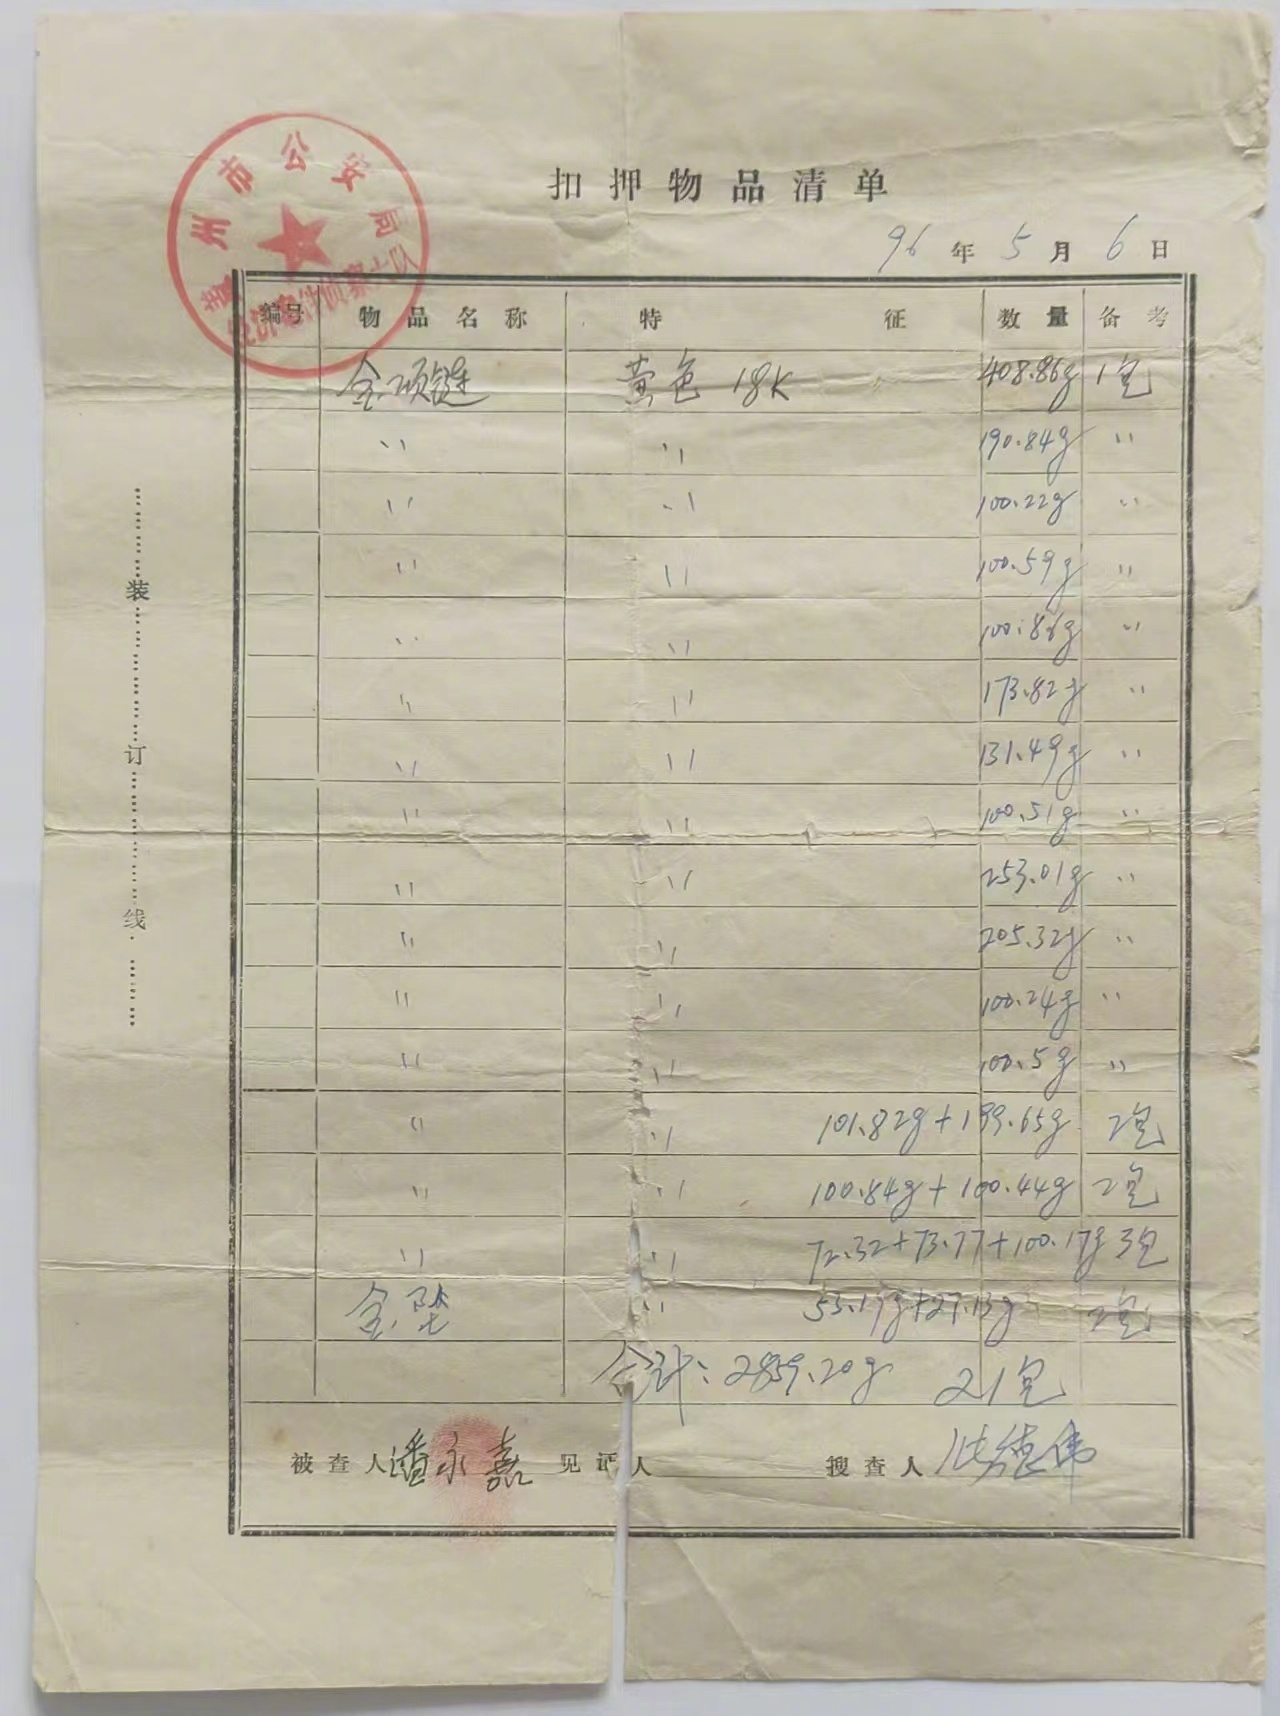 州市公安局
扣押物品清单
96年5月6日
编号 物品名称 特征 数量 备考
金项链 黄色 18K 408.86g 1包
〃 〃 190.84g 〃
〃 〃 100.22g 〃
〃 〃 100.59g 〃
〃 〃 100.86g 〃
〃 〃 173.82g 〃
〃 〃 131.49g 〃
〃 〃 100.51g 〃
〃 〃 253.01g 〃
〃 〃 205.32g 〃
〃 〃 100.24g 〃
〃 〃 100.5g 〃
〃 〃 101.82g+199.65g 2包
〃 〃 100.84g+100.44g 2包
〃 〃 72.32+73.77+100.17g 3包
金坠 〃 53.17g+27.13g 2包
合计：2859.20g 21包
被查人 潘永嘉 见证人 搜查人
装订线